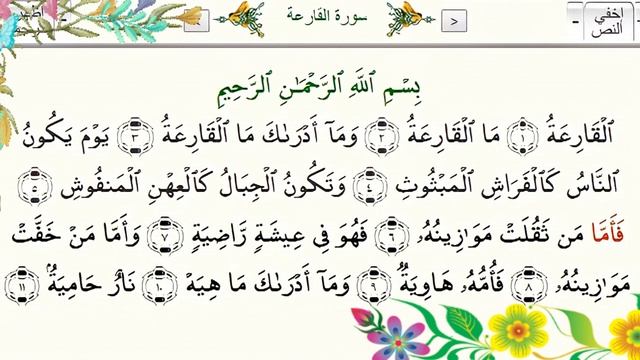 سورة القارعة
<
>
اخفي
النص
-
بِسْمِ ٱللَّهِ ٱلرَّحْمَـٰنِ ٱلرَّحِيمِ
ٱلْقَارِعَةُ ١ مَا ٱلْقَارِعَةُ ٢ وَمَآ أَدْرَىٰكَ مَا ٱلْقَارِعَةُ ٣ يَوْمَ يَكُونُ
ٱلنَّاسُ كَٱلْفَرَاشِ ٱلْمَبْثُوثِ ٤ وَتَكُونُ ٱلْجِبَالُ كَٱلْعِهْنِ ٱلْمَنفُوشِ ٥
فَأَمَّا مَن ثَقُلَتْ مَوَٰزِينُهُۥ ٦ فَهُوَ فِى عِيشَةٍ رَّاضِيَةٍ ٧ وَأَمَّا مَنْ خَفَّتْ
مَوَٰزِينُهُۥ ٨ فَأُمُّهُۥ هَاوِيَةٌ ٩ وَمَآ أَدْرَىٰكَ مَا هِيَهْ ١٠ نَارٌ حَامِيَةٌۢ ١١